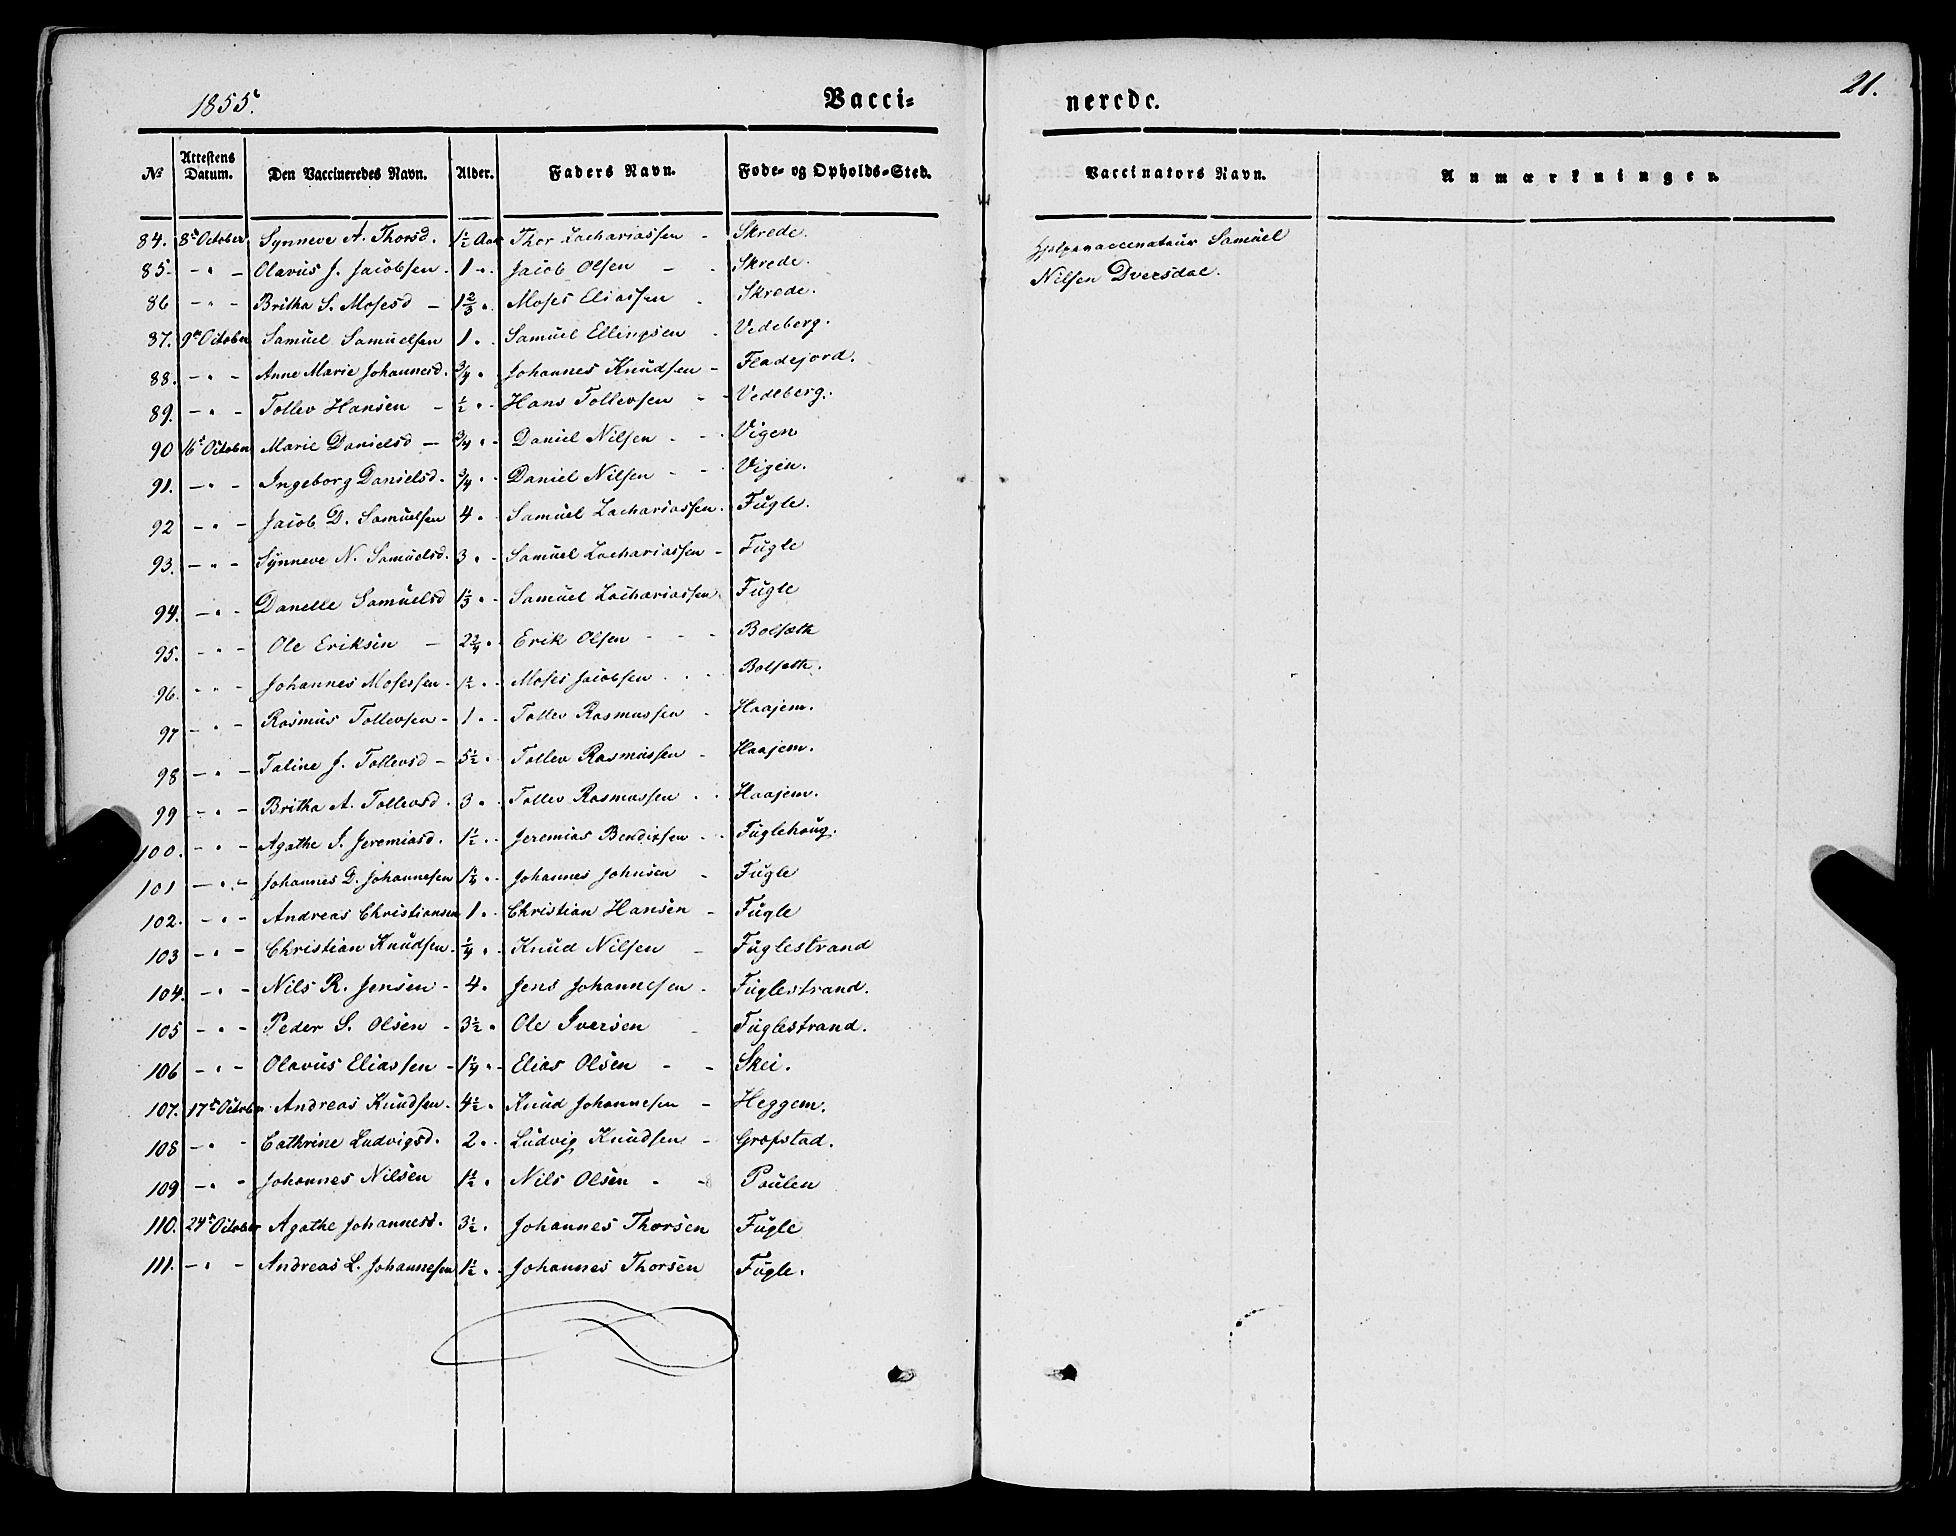 1855.
Vacci-
nerede.
21.
No Attestens Datum. Den Vaccineredes Navn. Alder. Faders Navn. Føde- og Opholds-Sted. Vaccinators Navn. Anmærkninger.
84. 8de October Synneve A. Thorsd. 1½ Aar Thor Zachariassen - Skrede. Hjelpevaccinateur Samuel
85. - " - Olavus J. Jacobsen. 1 ". Jacob Olsen - - Skrede. Nilsen Dversdal.
86 - " - Britha S. Mosesd - 1⅔ ". Moses Eliassen - Skrede.
87. 9de October Samuel Samuelsen 1 " Samuel Ellingsen - Vedeberg.
88. - " - Anne Marie Johannesd. ¾ " Johannes Knudsen - Fladejord.
89. - " - Tollev Hansen - ½ " - Hans Tollevsen - - Vedeberg.
90 16de October Marie Danielsd - ¾ " - Daniel Nilsen - - Vigen
91. - " - Ingeborg Danielsd. ¾ " - Daniel Nilsen - - Vigen.
92 - " - Jacob D. Samuelsen 4 " Samuel Zachariassen. Fugle.
93. - " - Synneve N. Samuelsd. 3 " - Samuel Zachariassen - Fugle
94. - " - Danelle Samuelsd 1⅓ " - Samuel Zachariassen. Fugle
95. - " - Ole Eriksen - 2¾ " Erik Olsen - - - Bolseth
96. " " - Johannes Mosessen - 1½ " - Moses Jacobsen - - - Bolseth.
97 - " - Rasmus Tollevsen - 1 " - Tollev Rasmussen - Haajem.
98 - " - Taline J. Tollevsd - 5½ " Tollev Rasmussen - Haajem.
99 - " - Britha A. Tollevsd. 3 " Tollev Rasmussen - - Haajem.
100. - " - Agathe S. Jeremiasd. 1½ " - Jeremias Bendixsen - - Fuglehoug.
101 - " - Johannes D. Johannesen 1¼ " Johannes Johnsen - Fugle
102. - " - Andreas Christiansen 1 " Christian Hansen - Fugle
103 - " - Christian Knudsen. ¼ " Knud Nilsen - Fuglestrand
104. - " - Nils R. Jensen - 4 " Jens Johannesen - Fuglestrand.
105 - " - Peder S. Olsen - 3½ " Ole Iversen - Fuglestrand.
106 - " - Olavus Eliassen - 1¼ " - Elias Olsen - - Skei.
107. 17de October Andreas Knudsen. 4½ " Knud Johannesen - Heggem.
108 - " - Cathrine Ludvigsd. 2 " - Ludvig Knudsen - Grøfstad.
109 - " - Johannes Nilsen 1½ " Nils Olsen - - Paulen
110. 24de October Agathe Johannesd. 3½ " Johannes Thorsen Fugle
111. - " - Andreas L. Johannesen 1½ " - Johannes Thorsen Fugle.